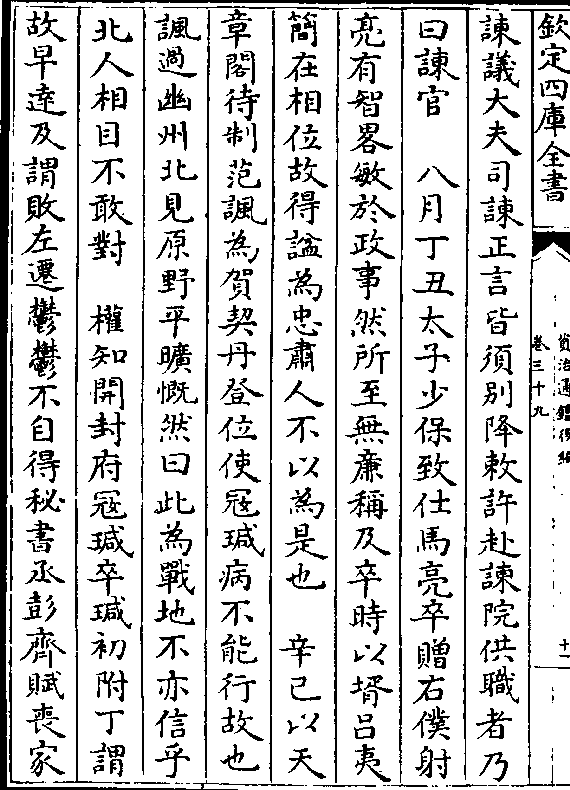 欽定四庫全書
資治通鑑後編
卷三十九
十一
諫議大夫司諫正言皆須别降敕許赴諫院供職者乃
曰諫官　八月丁丑太子少保致仕馬亮卒贈右僕射
亮有智畧敏於政事然所至無廉稱及卒時以壻吕夷
簡在相位故得諡為忠肅人不以為是也　辛已以天
章閣待制范諷為賀契丹登位使冦瑊病不能行故也
諷過幽州北見原野平曠慨然曰此為戰地不亦信乎
北人相目不敢對　權知開封府冦瑊卒瑊初附丁謂
故早逹及謂敗左遷鬱鬱不自得秘書丞彭齊賦喪家